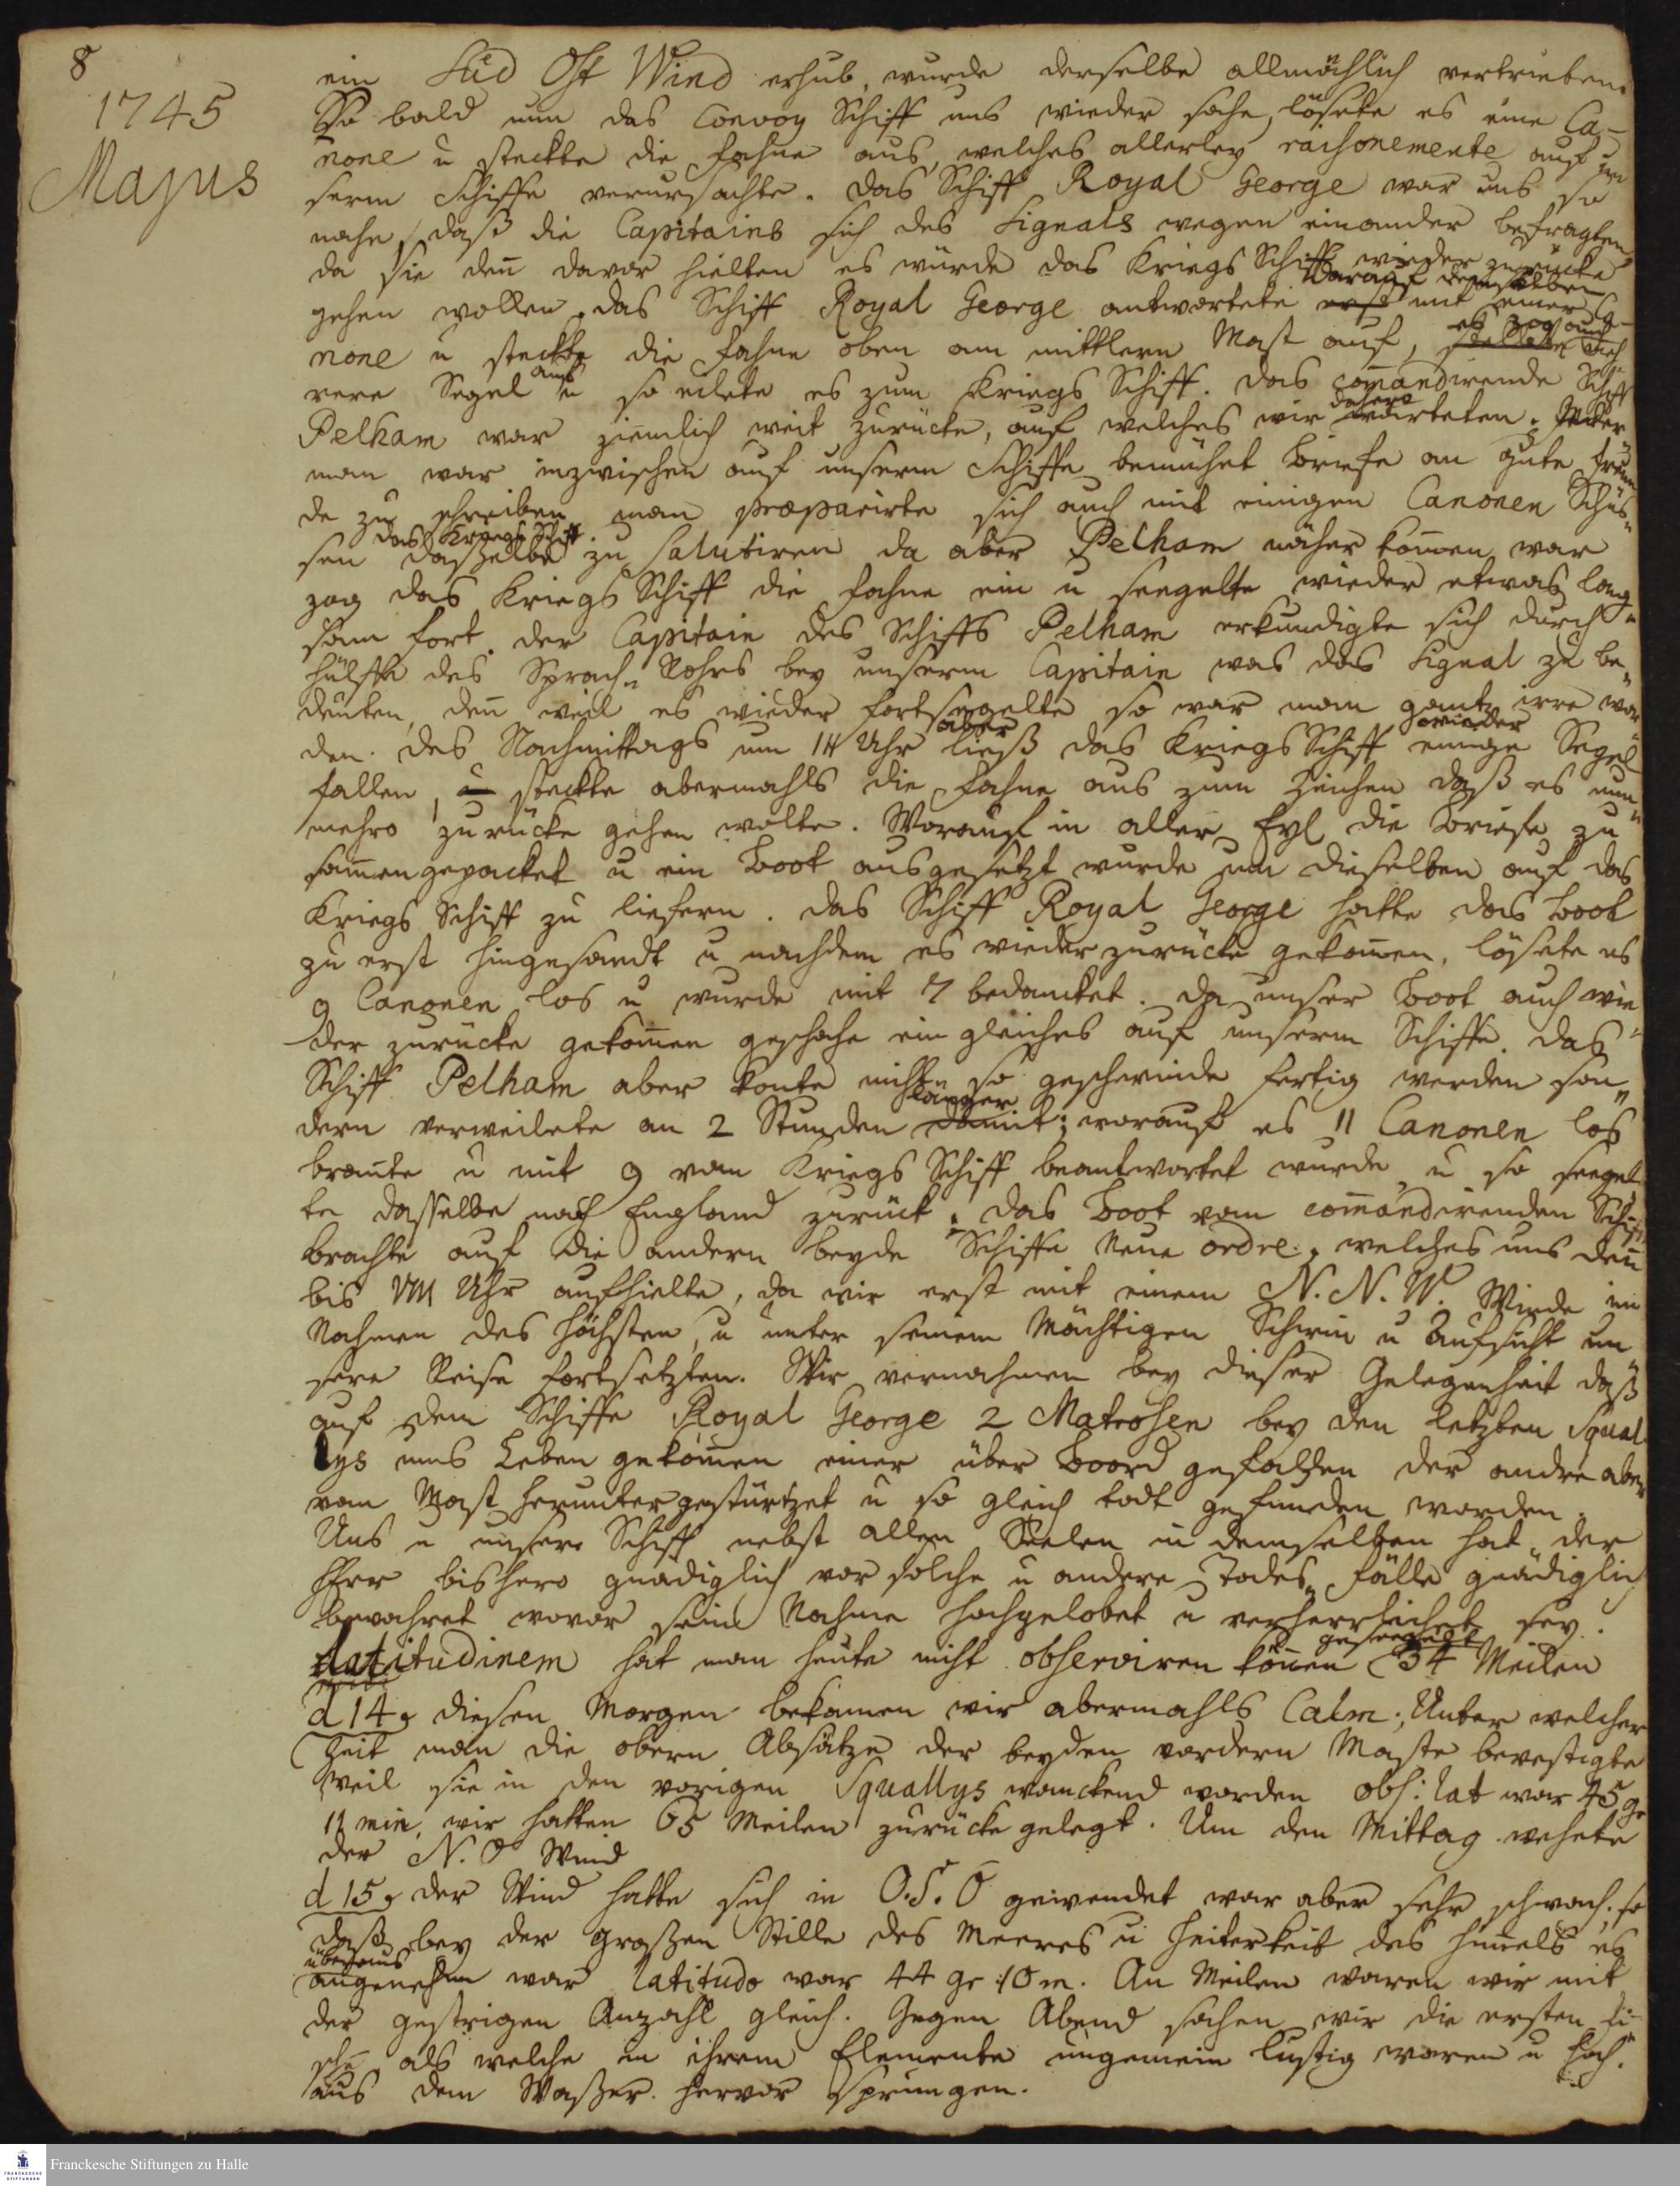 8
1745
Majus
ein Süd Ost Wind erhub, wurde derselbe allmählich vertrieben.
So bald nun das Convoy Schiff uns wieder sahe, lösete es eine Ca-
none u steckte die Fahne aus, welches allerley raisonemente auf un
serm Schiffe verursachte. Das Schiff Royal George war uns so
nahe, daß die Capitains sich des Signals wegen einander befragten,
da sie deñ davor hielten es würde das Kriegs Schiff wieder zurücke
gehen wollen. Das Schiff Royal George antwortete darauf demselben mit einer Ca-
none u steckte die Fahne oben am mittlern Mast auf, es zog auch meh
rere Segel auf u so eilete es zum Kriegs Schiff. Das com̃andirende Schiff
Pelham war ziemlich weit zurücke, auf welches wir dahero warteten.
man war inzwischen auf unserm Schiffe bemühet Briefe an gute Freun
de zu schreiben, man præparirte sich auch mit einigen Canonen Schüs-
sen das Kriegs Schiff zu salutiren da aber Pelham näher kom̃en war
zog das Kriegs Schiff die Fahne ein u seegelte wieder etwas lang-
sam fort. Der Capitain des Schiffs Pelham erkundigte sich durch
Hülffe des Sprach-Rohrs bey unserm Capitain was das Signal zu be-
deuten, deñ weil es wieder fortsegelte so war man gantz irre wor
den. Des Nachmittags um III Uhr aber ließ das Kriegs Schiff wieder einige Segel
fallen, u steckte abermahls die Fahne aus zum Zeichen daß es nun-
mehro zurücke gehen wolte. Worauf in aller Eyl die Briefe zu
sam̃engepacket u ein Boot ausgesetzt wurde um dieselben auf das
Kriegs Schiff zu liefern. Das Schiff Royal George hatte das Boot
zu erst hingesandt u nachdem es wieder zurücke gekom̃en, lösete es
9 Canonen los u wurde mit 7 bedancket. Da unser Boot auch wie-
der zurücke gekom̃en geschahe ein gleiches auf unserm Schiffe. Das
Schiff Pelham aber konte nicht so geschwinde fertig werden son-
dern verweilete an 2 Stunden länger; worauf es 11 Canonen los
brañte u mit 9 vom Kriegs Schiff beantwortet wurde, u so seegel
te dasselbe nach England zurück. Das Boot vom com̃andirenden Schiff
brachte auf die andern beyde Schiffe Neue ordre, welches uns deñ
bis VIII Uhr aufhielte, da wir erst mit einem N. N. W. Winde im
Nahmen des Höchsten, u unter seinem Mächtigen Schirm u Aufsicht un
sere Reise fortsetzten. Wir vernahmen bey dieser Gelegenheit daß
auf dem Schiffe Royal George 2 Matrosen bey den letzten Squal
lys ums Leben gekom̃en einer über Boord gefallen der andre aber
vom Mast heruntergestürtzet u so gleich todt gefunden worden.
Uns u unser Schiff nebst allen Seelen in demselben hat der
HErr bishero gnädiglich vor solche u andere Todes-Fälle gnädiglich
bewahret wovor sein Nahme hochgelobet u verherrlichet sey.
Latitudinem hat man heute nicht observiren kön̄en geseegelt 34 Meilen
d 14. diesen Morgen bekamen wir abermahls Calm; Unter welcher
Zeit man die obern Absätze der beyden vordern Maste bevestigte
weil sie in den vorigen Squallys wanckend worden obs: lat war 45 gr
11 min, wir hatten 65 Meilen zurücke gelegt. Um den Mittag wehete
der N. O Wind
d 15. der Wind hatte sich in O. S. O gewendet war aber sehr schwach; so
daß bey der großen Stille des Meeres u Heiterkeit des Him̃els es
überaus angenehm war Latitudo war 44 gr 10 m. An Meilen waren wir mit
der gestrigen Anzahl gleich. Gegen Abend sahen wir die ersten Fi-
sche als welche in ihrem Elemente ungemein lustig waren u hoch
aus dem Waßer hervor sprungen.
Franckesche Stiftungen zu Halle